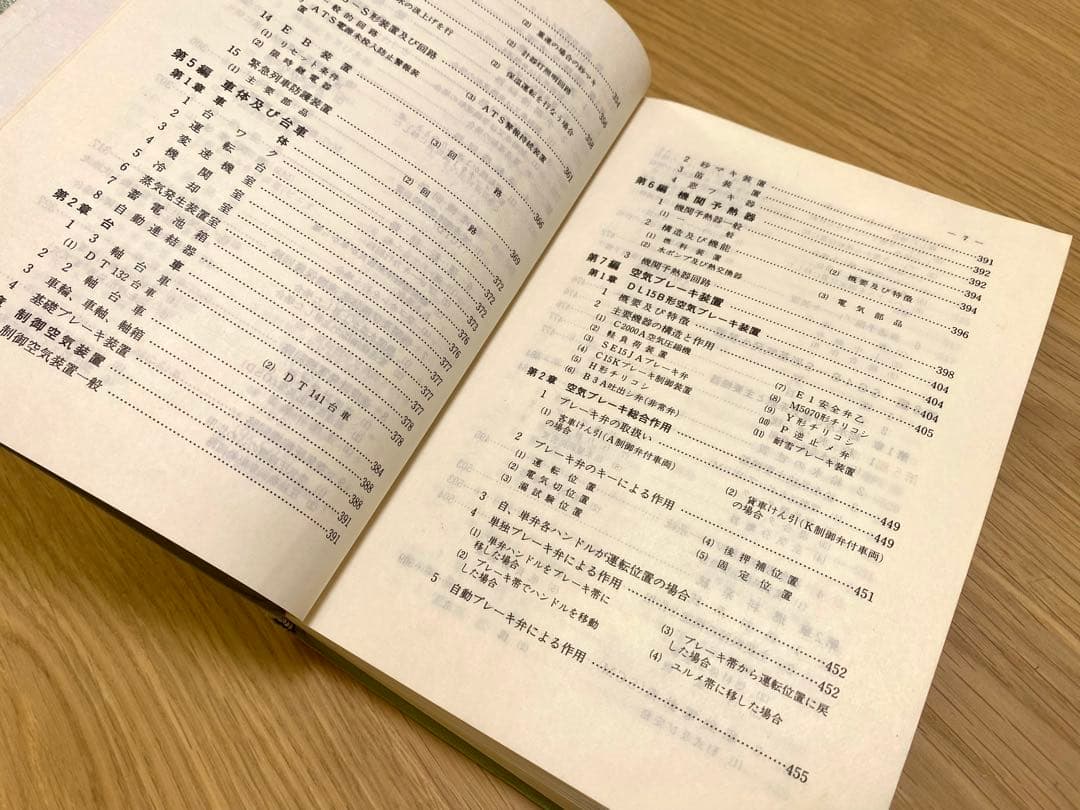 水の汲上げを行
(2) 重連の場合の砂マキ
‐S形装置及び回路
般的回路
(2) 計器灯照明回路
置 ATS電源未投入防止警報装
(2) 保温運転を行なう場合
(3) ATS警報持続装置
14 EB装置
(1) リセット条件
(2) 限時継電器
(3) 回路
361
15 緊急列車防護装置
(1) 主要部品
(2) 回路
366
第5編 車体及び台車
第1章 車体
1 台ワク
369
2 運転室
3 変速機室
372
4 機関室
372
5 冷却室
372
6 蒸気発生装置室
7 蓄電池箱
376
8 自動連結器
376
第2章 台車
377
1 3軸台車
377
(1) DT132台車
(2) DT141台車
2 2軸台車
3 車輪、車軸、軸箱
378
4 基礎ブレーキ装置
384
制御空気装置
388
制御空気装置一般
391
391
— 7 —
2 砂マキ装置
391
3 笛装置
392
4 窓フキ器
392
第6編 機関予熱器
1 機関予熱器一般
394
(1) 一般
(2) 概要及び特徴
2 構造及び機能
394
(1) 燃料装置
(3) 電気部品
(2) 水ポンプ及び熱交換器
3 機関予熱器回路
396
第7編 空気ブレーキ装置
第1章 DL15B形空気ブレーキ装置
398
1 概要及び特徴
404
2 主要機器の構造と作用
404
(1) C2000A空気圧縮機
(7) E1安全弁乙
(2) 軽負荷装置
(8) M5070形チリコシ
(3) SE15JAブレーキ弁
(9) Y形チリコシ
(4) C15Kブレーキ制御装置
(10) P逆止メ弁
(5) H形チリコシ
(11) 耐雪ブレーキ装置
(6) B3A吐出シ弁(非常弁)
第2章 空気ブレーキ総合作用
1 ブレーキ弁の取扱い
449
(1) 客車けん引(A制御弁付車両)の場合
(2) 貨車けん引(K制御弁付車両)の場合
2 ブレーキ弁のキーによる作用
451
(1) 運転位置
(4) 後押補位置
(2) 電気切位置
(5) 固定位置
(3) 漏試験位置
3 自、単弁各ハンドルが運転位置の場合
452
4 単独ブレーキ弁による作用
452
(1) 単弁ハンドルをブレーキ帯に移した場合
(3) ブレーキ帯から運転位置に戻した場合
(2) ブレーキ帯でハンドルを移動した場合
(4) ユルメ帯に移した場合
5 自動ブレーキ弁による作用
455